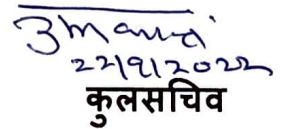 22/9/2022
कुलसचिव